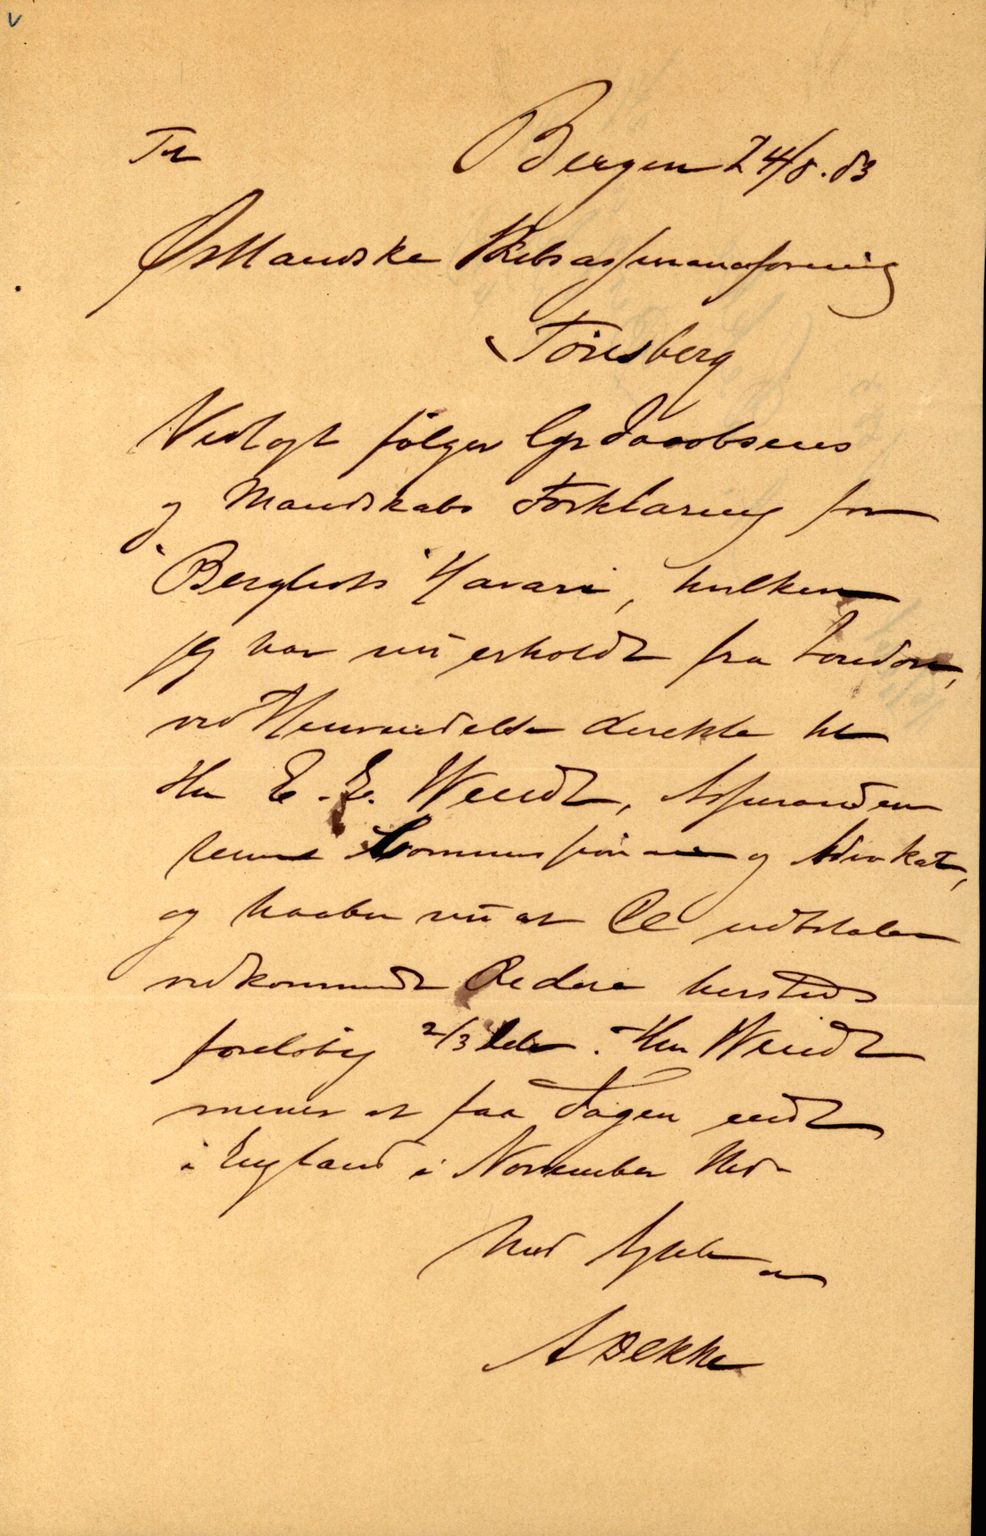 Til
Bergen 24/8. 83
Østlandske Skibsassuranceforening
Tønsberg
Vedlagt følger Cpt Jacobsens
og Mandskabs Forklaring for
"Bergliots" Havari, hvilken
jeg har nu erholdt fra London,
ved Henvendelse direkte til
Hr E. E. Wendt, Assurandør
Commissionær og Advokat,
og haaber nu at De udbetaler
vedkommende Redere hersteds
foreløbig 2/3 Dele. Hr Wendt
mener at faa Sagen endt
i England i November Md
Med Agtelse
A Dekke